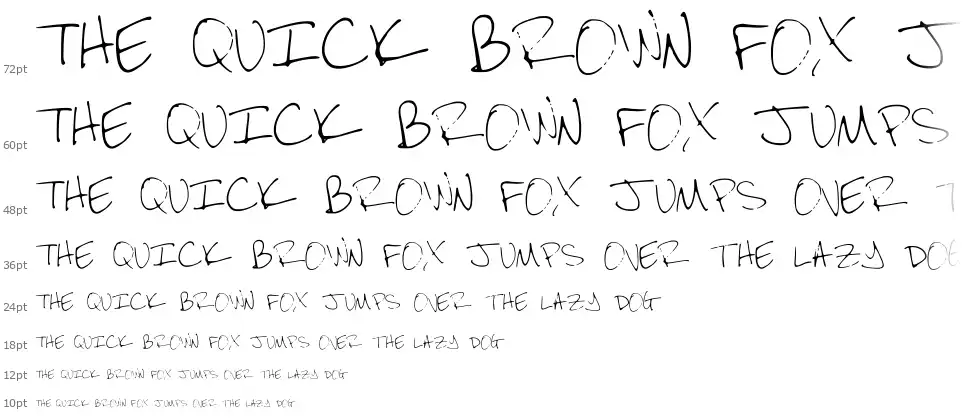 72pt THE QUICK BROWN FOX J
60pt THE QUICK BROWN FOX JUMPS
48pt THE QUICK BROWN FOX JUMPS OVER T
36pt THE QUICK BROWN FOX JUMPS OVER THE LAZY DOG
24pt THE QUICK BROWN FOX JUMPS OVER THE LAZY DOG
18pt THE QUICK BROWN FOX JUMPS OVER THE LAZY DOG
12pt THE QUICK BROWN FOX JUMPS OVER THE LAZY DOG
10pt THE QUICK BROWN FOX JUMPS OVER THE LAZY DOG